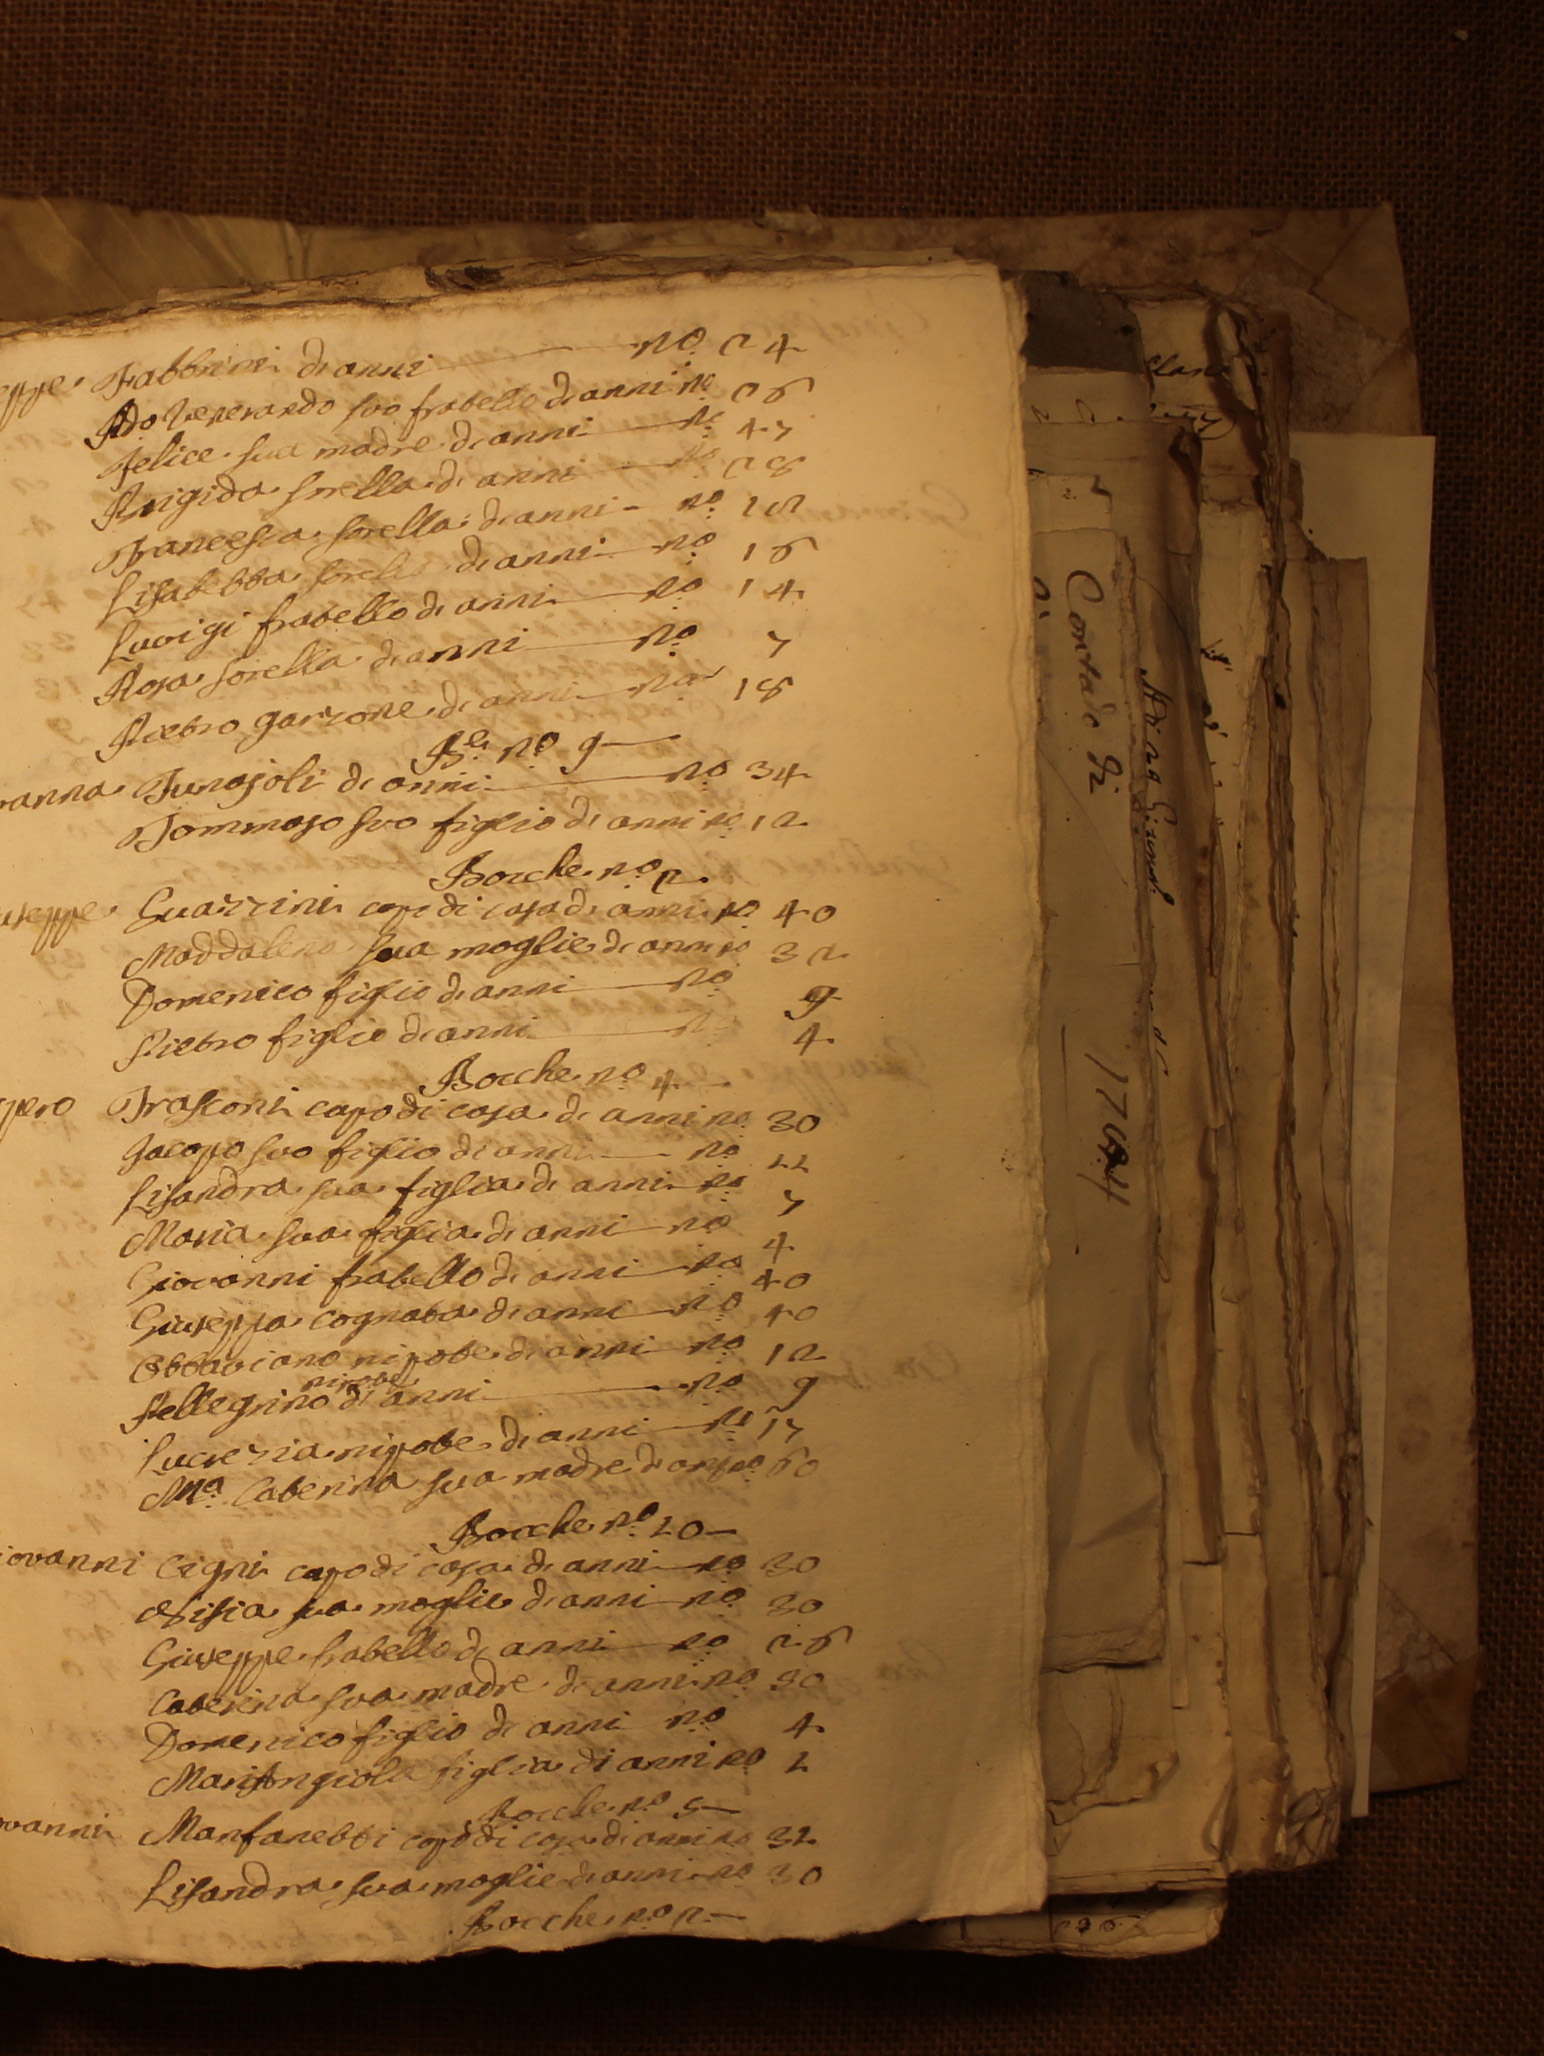 eppe Fabbrini di anni no. 24
Pdo Venerando suo fratello di anni no. 26
Felice sua madre di anni no. 47
Brigida sorella di anni no. 28
Francesca sorella di anni no. 12
Lisabetta sorella di anni no. 16
Luvigi fratello di anni no. 14
Rosa sorella di anni no. 7
Pietro garzone di anni no. 18
Be. no. 9
vanna Funajoli di anni no. 34
Tommaso suo figlio di anni no. 12
Bocche no. 2
useppe Guazzini capo di casa di anni no. 40
Maddalena sua moglie di anni no. 32
Domenico figlio di anni no. 9
Pietro figlio di anni no. 4
Bocche no. 4
spero Frasconi capo di casa di anni no. 30
Jacopo suo figlio di anni no. 11
Lisandra sua figlia di anni no. 7
Maria sua figlia di anni no. 4
Giovanni fratello di anni no. 40
Giuseppa cognata di anni no. 40
Ottaviano nipote di anni no. 12
Pellegrino nipote di anni no. 9
Lucrezia nipote di anni no. 17
Ma. Caterina sua madre di anni no. 60
Bocche no. 10
iovanni Cigni capo di casa di anni no. 30
sua moglie di anni no. 30
Giuseppe fratello di anni no. 26
Caterina sua madre di anni no. 30
Domenico figlio di anni no. 4
MariAngiola figlia di anni no. 1
Bocche no. 5
ovanni Manfanetti capo di casa di anni no. 32
Lisandra sua moglie di anni no. 30
Bocche no. 2
Contado di
1704